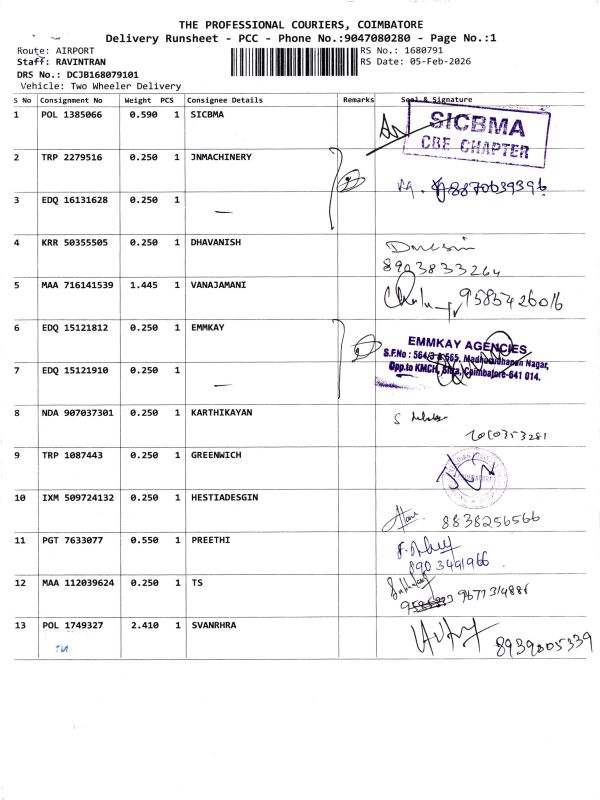 THE PROFESSIONAL COURIERS, COIMBATORE
Delivery Runsheet - PCC - Phone No.:9047080280 - Page No.:1
Route: AIRPORT
RS No.: 1680791
Staff: RAVINTRAN
RS Date: 05-Feb-2026
DRS No.: DCJB168079101
Vehicle: Two Wheeler Delivery
S No Consignment No Weight PCS Consignee Details Remarks Seal & Signature
1 POL 1385066 0.590 1 SICBMA
SICBMA
CRE CHAPTER
2 TRP 2279516 0.250 1 JNMACHINERY
8870639396
3 EDQ 16131628 0.250 1
4 KRR 50355505 0.250 1 DHAVANISH
8903833264
5 MAA 716141539 1.445 1 VANAJAMANI
9585426016
6 EDQ 15121812 0.250 1 EMMKAY
EMMKAY AGENCIES
S.F.No : 564/3 & 565, Madhusudhanan Nagar,
Opp.to KMCH, Sitra, Coimbatore-641 014.
7 EDQ 15121910 0.250 1
8 NDA 907037301 0.250 1 KARTHIKAYAN
9 TRP 1087443 0.250 1 GREENWICH
10 IXM 509724132 0.250 1 HESTIADESGIN
8838256566
11 PGT 7633077 0.550 1 PREETHI
8903491966
12 MAA 112039624 0.250 1 TS
9677314886
13 POL 1749327 2.410 1 SVANRHRA
8939805339